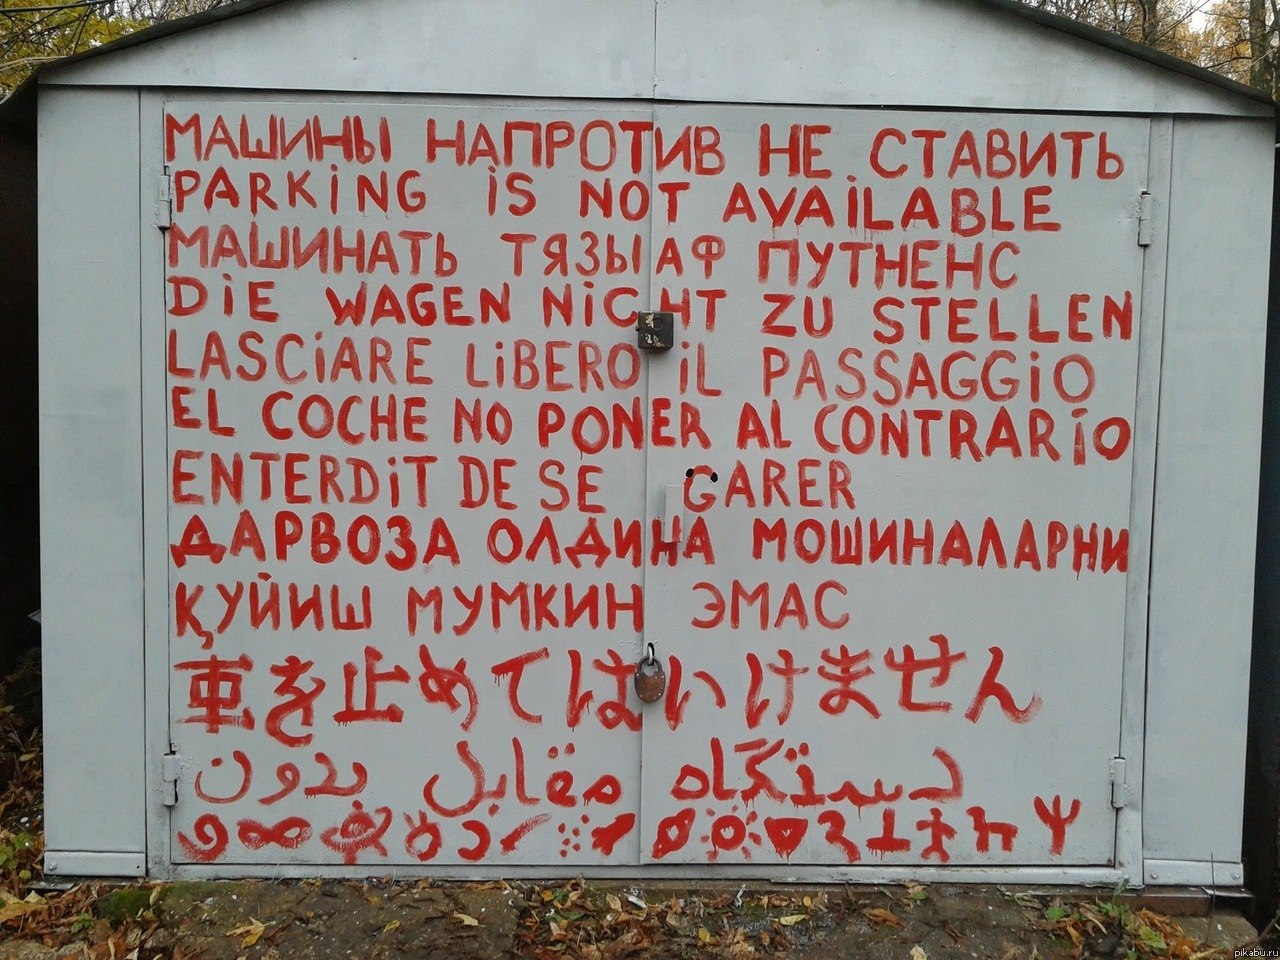 МАШИНЫ НАПРОТИВ НЕ СТАВИТЬ
PARKING IS NOT AVAILABLE
МАШИНАТЬ ТЯЗЫ АФ ПУТНЕНС
DIE WAGEN NICHT ZU STELLEN
LASCIARE LIBERO IL PASSAGGIO
EL COCHE NO PONER AL CONTRARÍO
ENTERDIT DE SE GARER
ДАРВОЗА ОЛДИНА МОШИНАЛАРНИ
ҚУЙИШ МУМКИН ЭМАС
車を止めてはいけません
دستگاه مقابل بدون
pikabu.ru